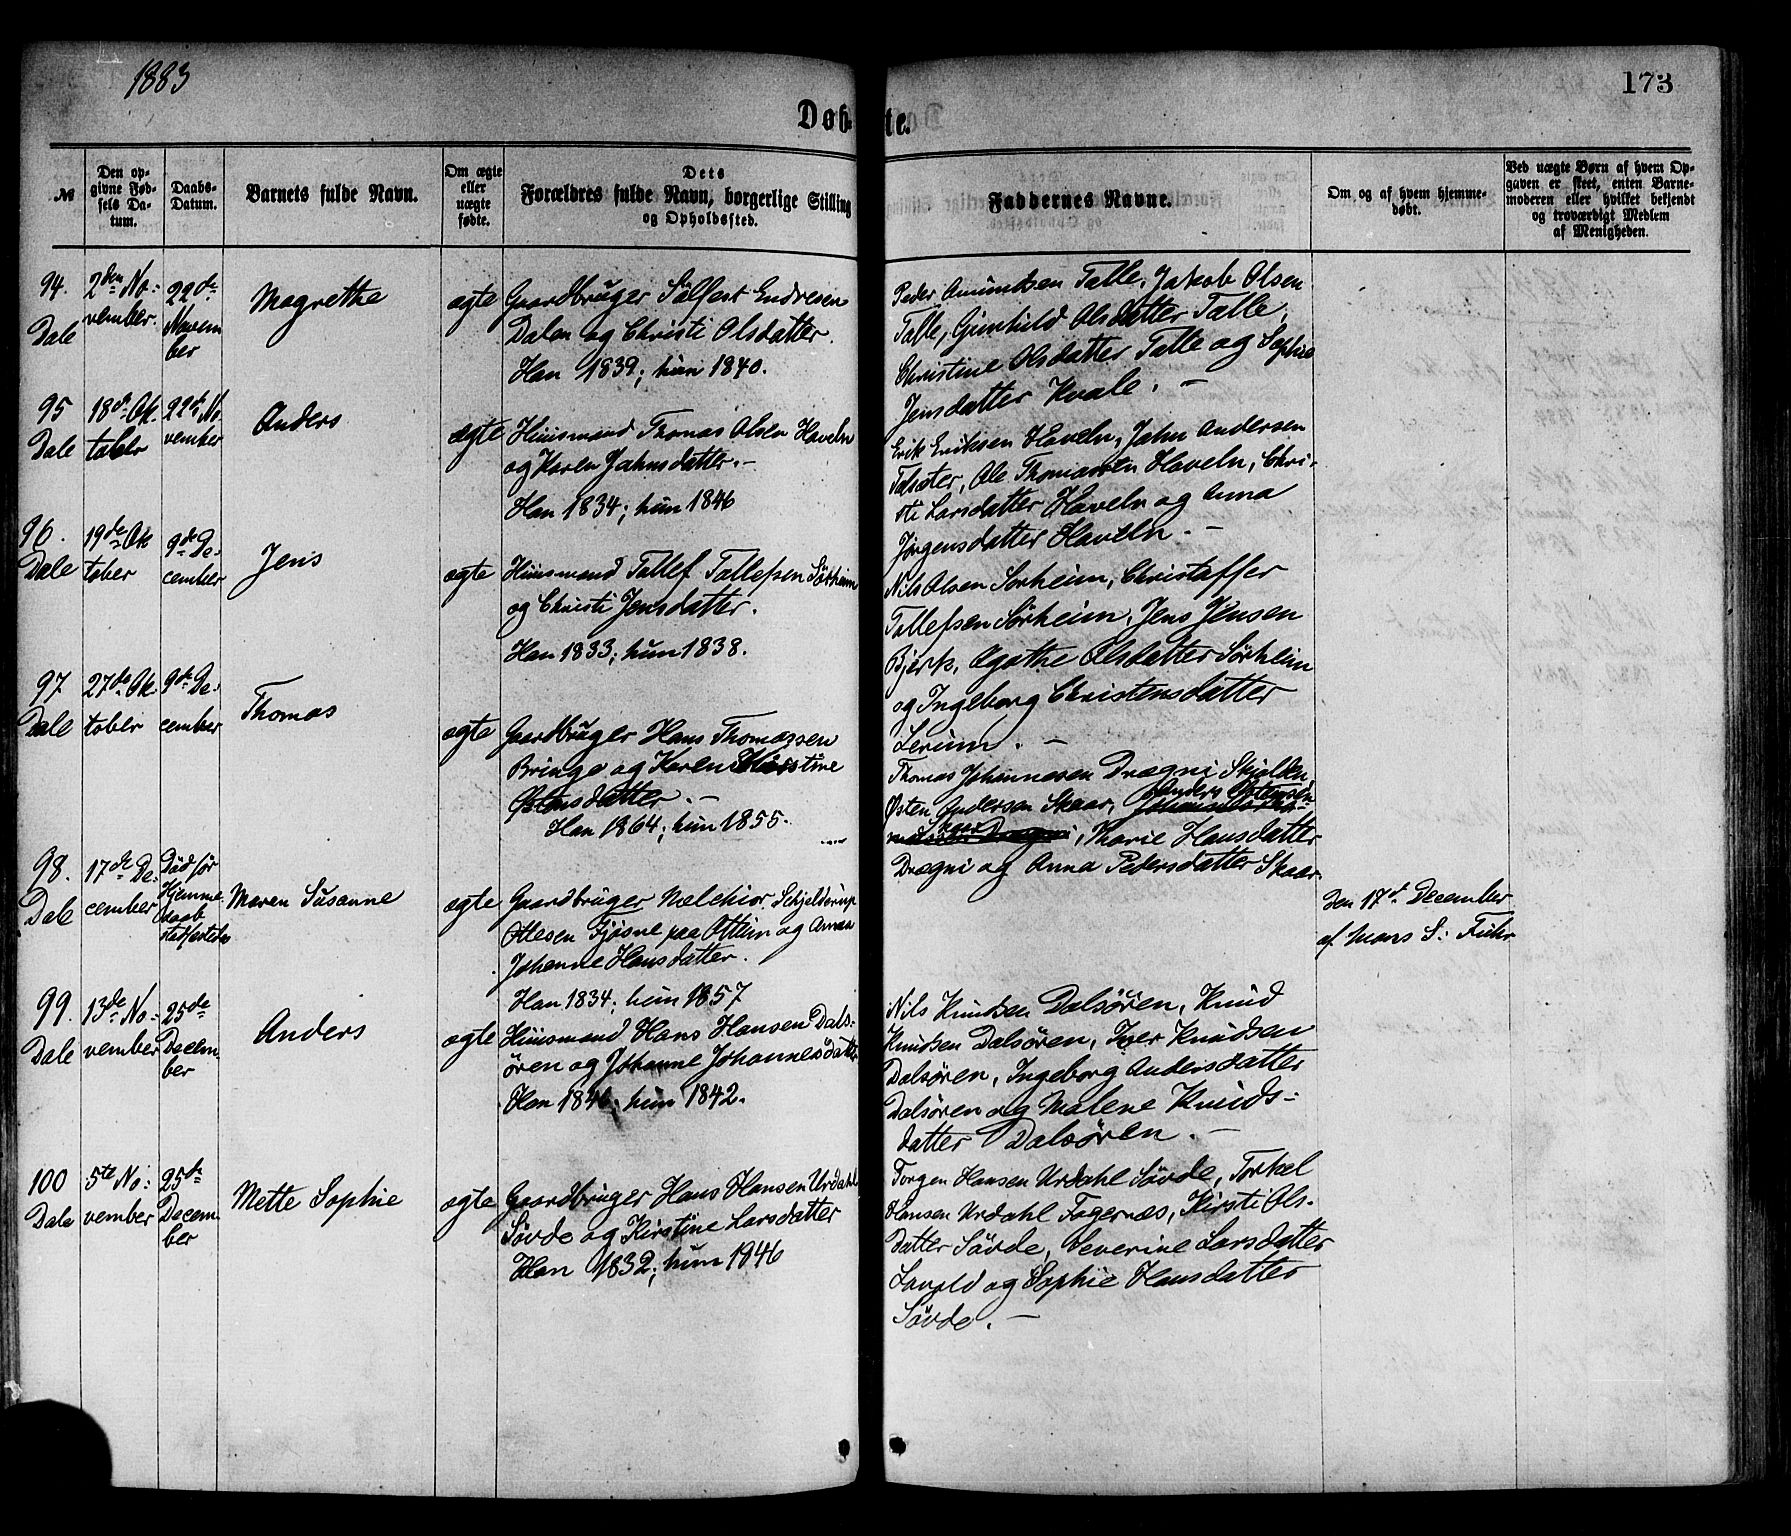 1883
173
Døb-
te.
№
Den op-
givne Fød-
sels Da-
tum.
Daabs-
Datum.
Barnets fulde Navn.
Om ægte
eller
uægte
fødte.
Dets
Forældres fulde Navn, borgerlige Stilling
og Opholdssted.
Faddernes Navne.
Om og af hvem hjemme-
døbt.
Ved uægte Børn af hvem Op-
gaven er skeet, enten Barne-
moderen eller hvilket bekjendt
og troværdigt Medlem
af Menigheden.
94.
Dale
2den No-
vember.
22de
Novem
ber
Magrethe
ægte
Gaardbruger Sålfest Endresen
Dalen og Christi Olsdatter.
Han 1839; hun 1840.
Peder Amundsen Talle, Jakob Olsen
Talle, Gunhild Olsdatter Talle,
Christine Olsdatter Talle og Sophie
Jensdatter Kvale. -
95
Dale
18de Ok-
tober
22de No
vember
Anders
ægte
Huusmand Thomas Olsen Haveln
og Karen Jahnsdatter. -
Han 1834; hun 1846
Erik Eriksen Haveln, Jahn Andersen
Talsæter, Ole Thomassen Haveln, Chri-
sti Larsdatter Haveln og Anna
Jørgensdatter Haveln. -
96.
Dale
19de Ok
tober
9de De-
cember
Jens
ægte
Huusmand Tollef Tollefsen Sørheim
og Christi Jensdatter.
Han 1833; hun 1838.
Nils Olsen Sørheim, Christoffer
Tollefsen Sørheim, Jens Jensen
Bjerk, Agathe Olsdatter Sørheim
og Ingeborg Christensdatter
Lerum. -
97
Dale
27de Ok-
tober
9de De-
cember
Thomas
ægte
Gaardbruger Hans Thomassen
Bringe og Karen Kirstine
Østensdatter. -
Han 1864; hun 1855.
Thomas Johannesen Drægni Skjolden,
Østen Andersen Skaar, Anders Østensen
Skaar, Marie Hansdatter
Drægni og Anna Pedersdatter Skaar.
98.
Dale
17de De-
cember
Død før
Hjemme
daab
stadfæstedes
Maren Susanne
ægte
Gaardbruger Melchior Schjelderup
Ottesen Fjøsne paa Ottum og Anna
Johanne Hansdatter.
Han 1834; hun 1857
Den 17de December
af Mons S. Fuhr
99.
Dale
13de No-
vember
25de
Decem-
ber
Anders
ægte
Huusmand Hans Hansen Dals-
øren og Johanne Johannesdatter
Han 1846; hun 1842.
Nils Knudsen Dalsøren, Knud
Knudsen Dalsøren, Iver Knudsen
Dalsøren, Ingeborg Andersdatter
Dalsøren og Malene Knuds-
datter Dalsøren. -
100
Dale
5te No-
vember
25de
Decem-
ber
Mette Sophie
ægte
Gaardbruger Hans Hansen Urdahl
Søvde og Kirstine Larsdatter
Han 1832; hun 1846
Torgen Hansen Urdahl Søvde, Torkel
Hansen Urdahl Fagernæs, Kirsti Ols-
datter Søvde, Severine Larsdatter
og Sophie Hansdatter
Søvde. -